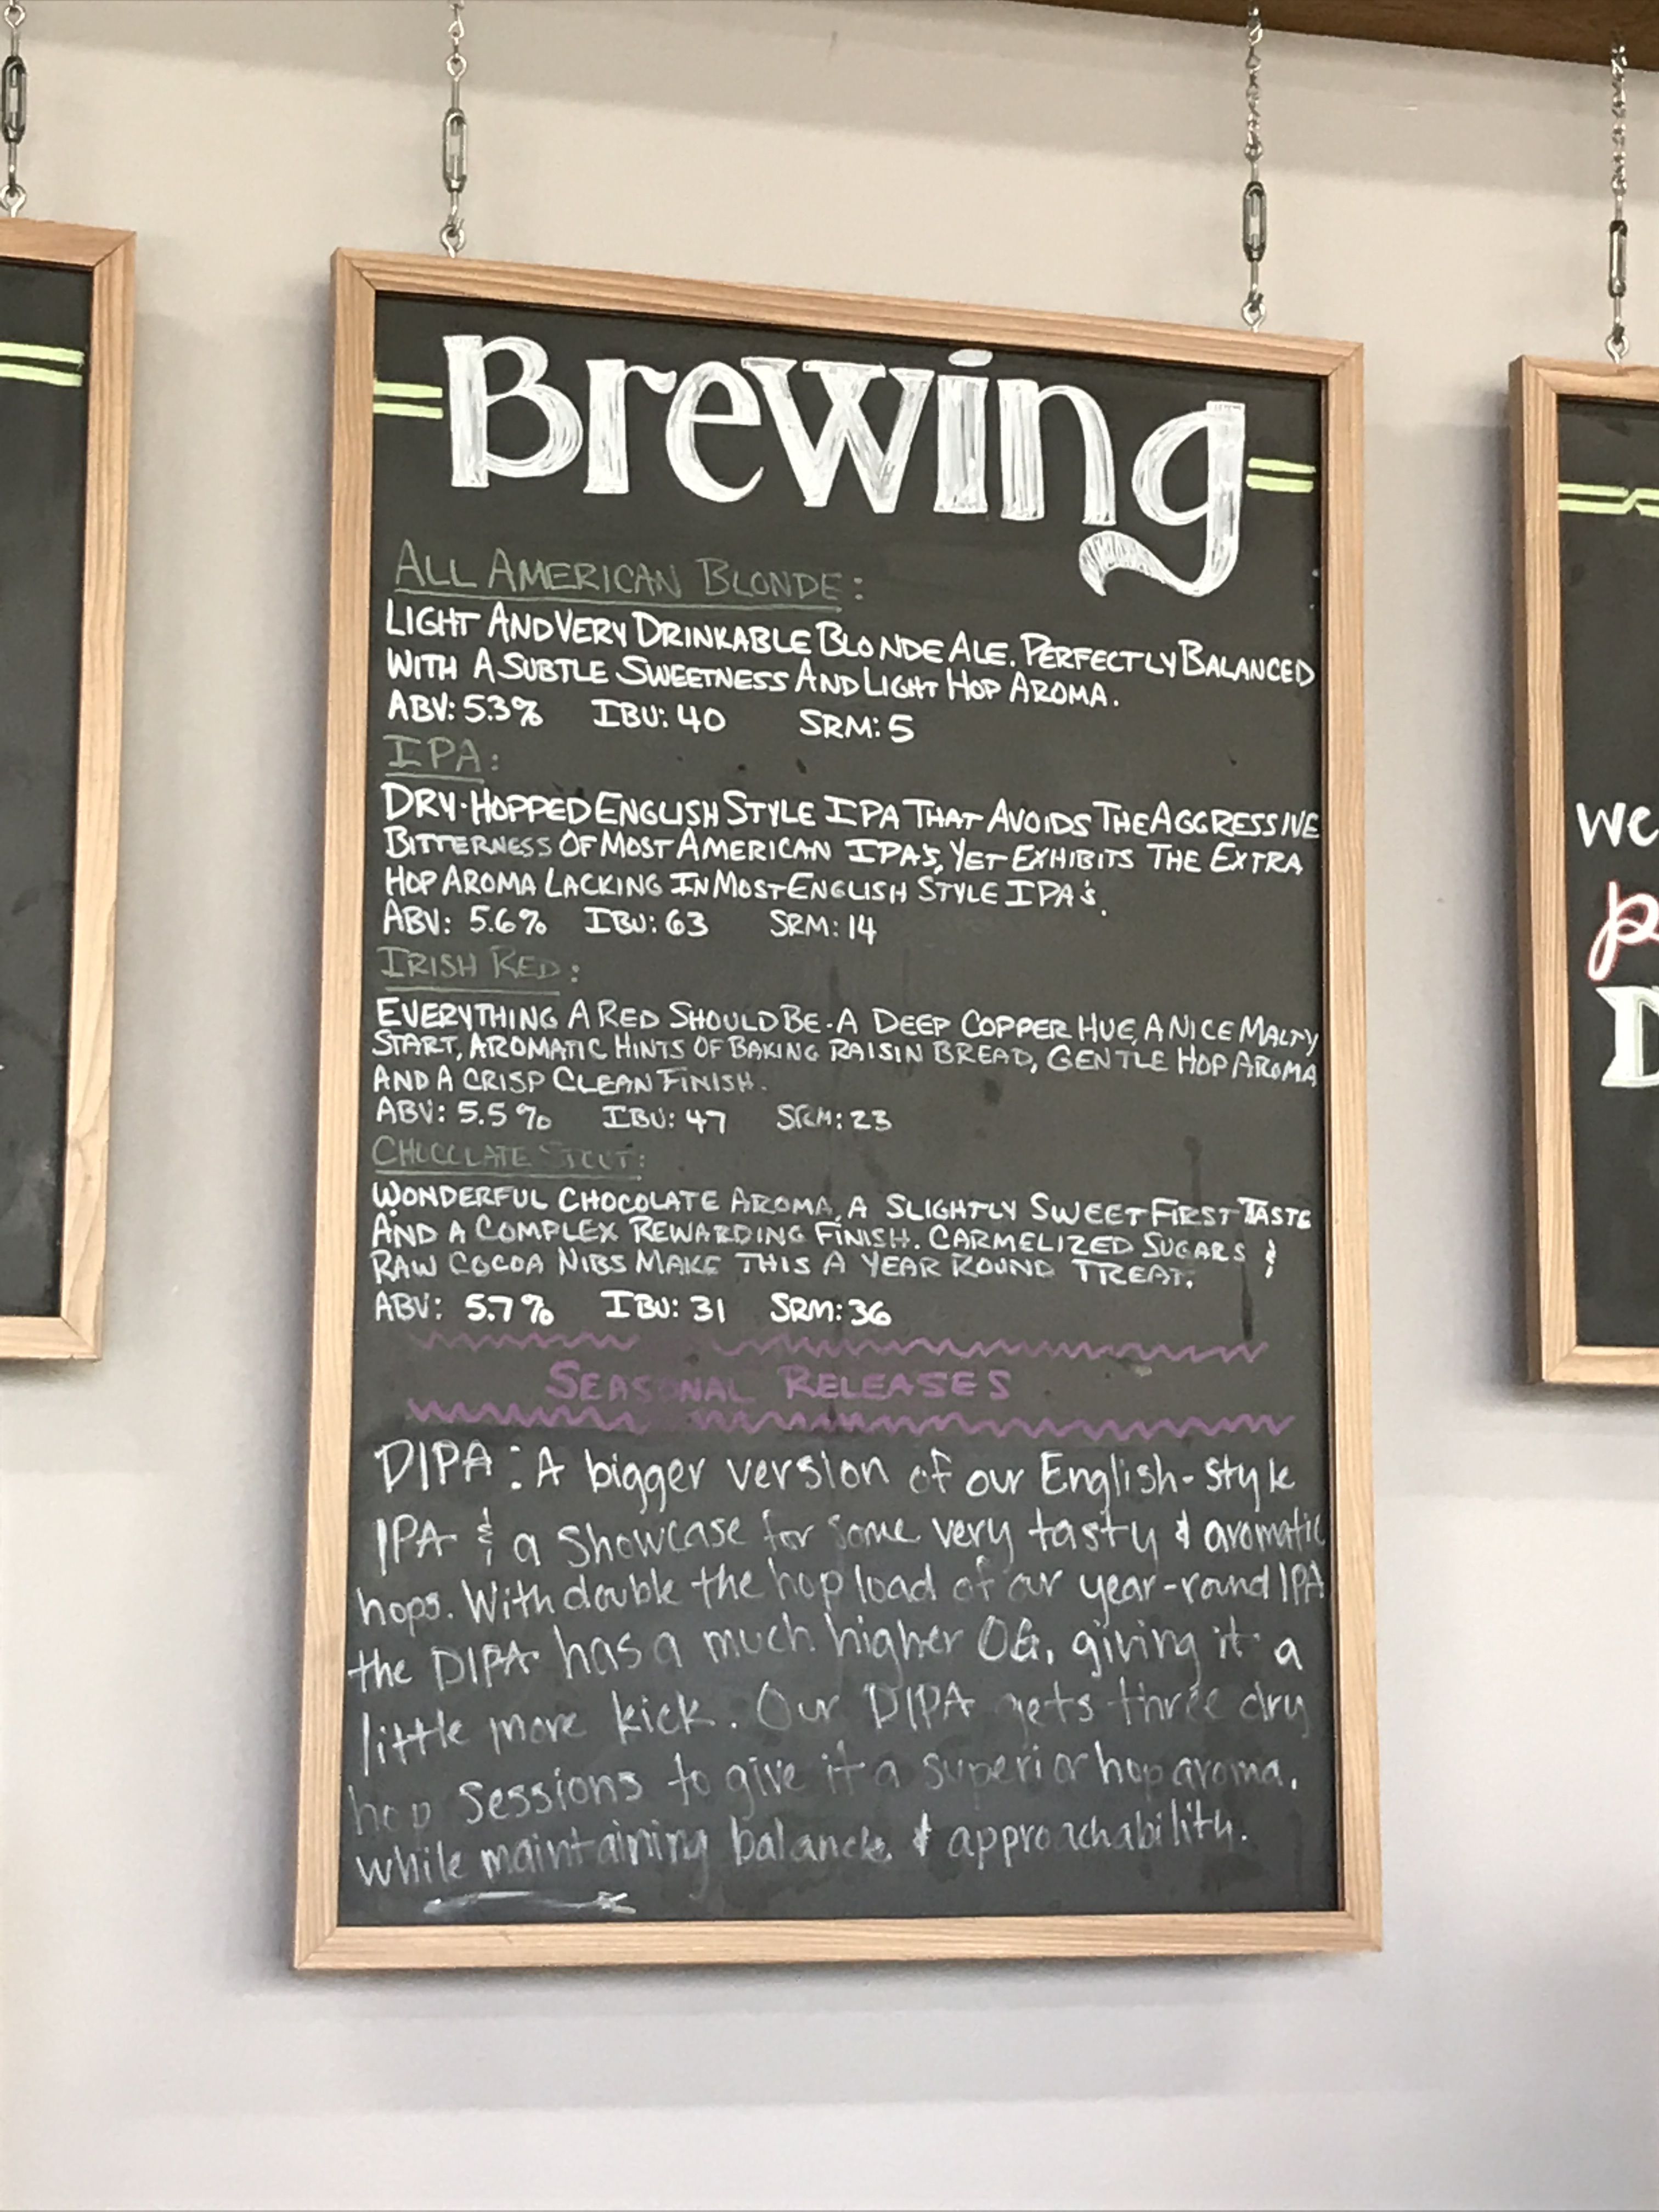 Brewing
ALL AMERICAN BLONDE:
LIGHT AND VERY DRINKABLE BLONDE ALE. PERFECTLY BALANCED
WITH A SUBTLE SWEETNESS AND LIGHT HOP AROMA.
ABV: 5.3% IBU: 40 SRM: 5
IPA:
DRY-HOPPED ENGLISH STYLE IPA THAT AVOIDS THE AGGRESSIVE
BITTERNESS OF MOST AMERICAN IPA'S, YET EXHIBITS THE EXTRA
HOP AROMA LACKING IN MOST ENGLISH STYLE IPA'S.
ABV: 5.6% IBU: 63 SRM: 14
IRISH RED:
EVERYTHING A RED SHOULD BE - A DEEP COPPER HUE, A NICE MALTY
START, AROMATIC HINTS OF BAKING RAISIN BREAD, GENTLE HOP AROMA
AND A CRISP CLEAN FINISH.
ABV: 5.5% IBU: 47 SRM: 23
CHOCOLATE STOUT:
WONDERFUL CHOCOLATE AROMA, A SLIGHTLY SWEET FIRST TASTE
AND A COMPLEX REWARDING FINISH. CARMELIZED SUGARS &
RAW COCOA NIBS MAKE THIS A YEAR ROUND TREAT.
ABV: 5.7% IBU: 31 SRM: 36
SEASONAL RELEASES
DIPA: A bigger version of our English-style
IPA & a showcase for some very tasty & aromatic
hops. With double the hop load of our year-round IPA
the DIPA has a much higher OG, giving it a
little more kick. Our DIPA gets three dry
hop sessions to give it a superior hop aroma,
while maintaining balance & approachability.
we
p
D